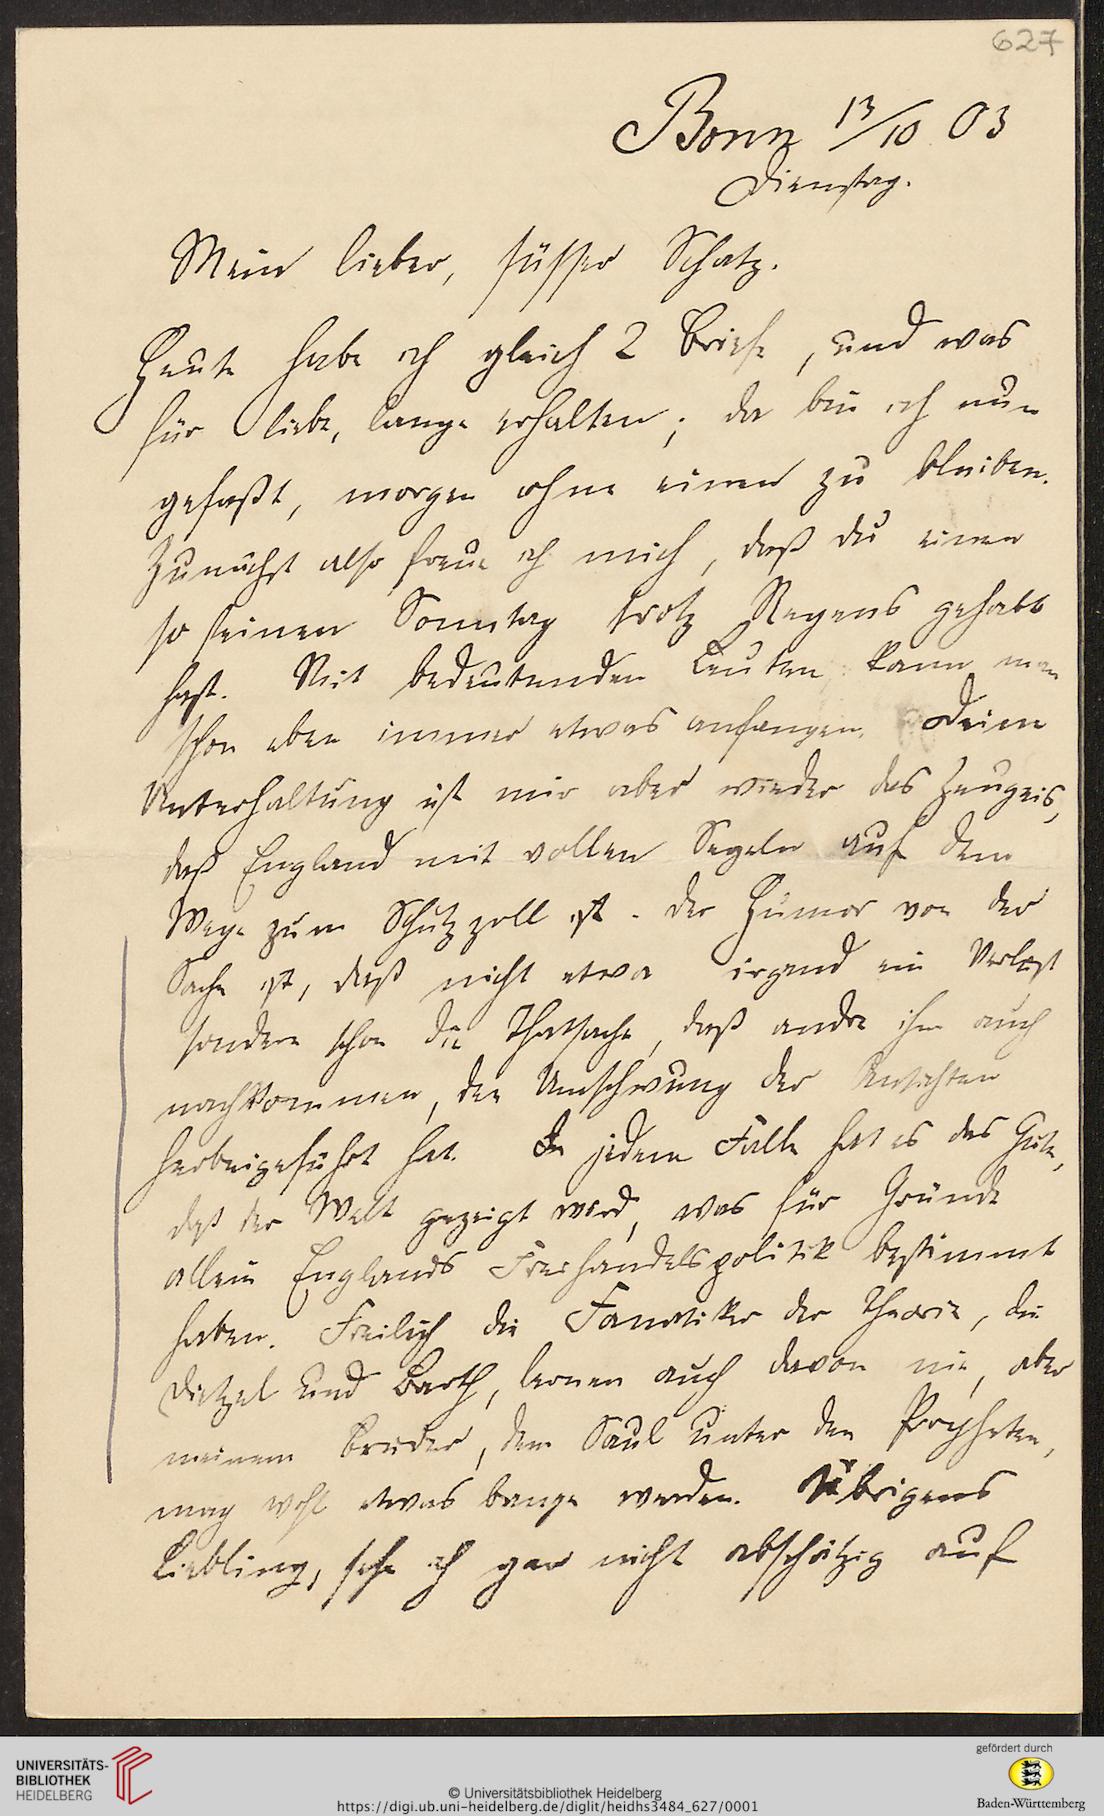 627
Bonn 13/10 03
Dienstag.
Mein lieber, süsser Schatz.
Heute habe ich gleich 2 Briefe, und was
für liebe, lange erhalten; da bin ich nun
gefaßt, morgen ohne einen zu bleiben.
Zunächst also freue ich mich, daß du einen
so feinen Sonntag trotz Regens gehabt
hast. Mit bedeutenden Leuten kann man
schon eben immer etwas anfangen. Deine
Unterhaltung ist mir aber wieder das Zeugnis,
daß England mit vollen Segeln auf dem
Wege zum Schutzzoll ist. Der Humor von der
Sache ist, daß nicht etwa irgend ein Verlust
sondern schon die Thatsache, daß andre ihm auch
nachkommen, den Umschwung der Ansichten
herbeigeführt hat. In jedem Falle hat es das Gute,
daß der Welt gezeigt wird, was für Gründe
allein Englands Freihandelspolitik bestimmt
haben. Freilich die Fanatiker der Theorie, die
Dietzel und Barth, lernen auch davon nie, aber
meinem Bruder, dem Saul unter den Propheten,
mag wohl etwas bange werden. Übrigens
Liebling, sehe ich gar nicht abschätzig auf
UNIVERSITÄTS-
BIBLIOTHEK
HEIDELBERG
© Universitätsbibliothek Heidelberg
https://digi.ub.uni-heidelberg.de/diglit/heidhs3484_627/0001
gefördert durch
Baden-Württemberg